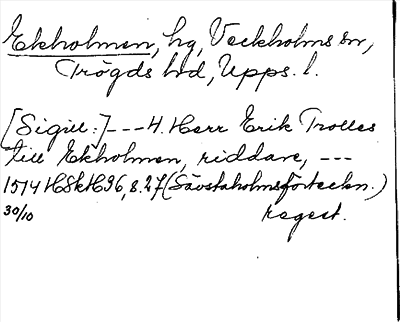 Ekholmen, hg, Veckholms sn,
Trögds hd, Upps. l.
[Sigill:] --- 4. Herr Erik Trolles
till Ekholmen, riddare, ---
1514 HSkH 36, s. 27 (Sävstaholmsförteckn.)
30/10 regest.